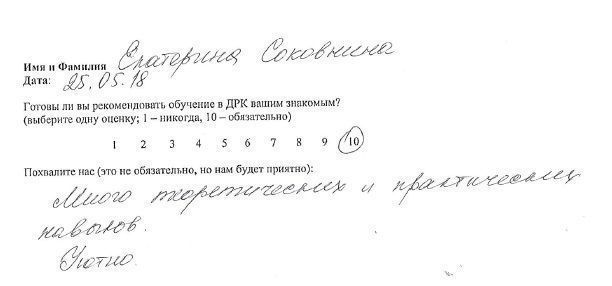 Имя и Фамилия Екатерина Соковнина
Дата: 25.05.18
Готовы ли вы рекомендовать обучение в ДРК вашим знакомым?
(выберите одну оценку; 1 – никогда, 10 – обязательно)
1 2 3 4 5 6 7 8 9 10
Похвалите нас (это не обязательно, но нам будет приятно):
Много теоретических и практических
навыков.
Уютно.